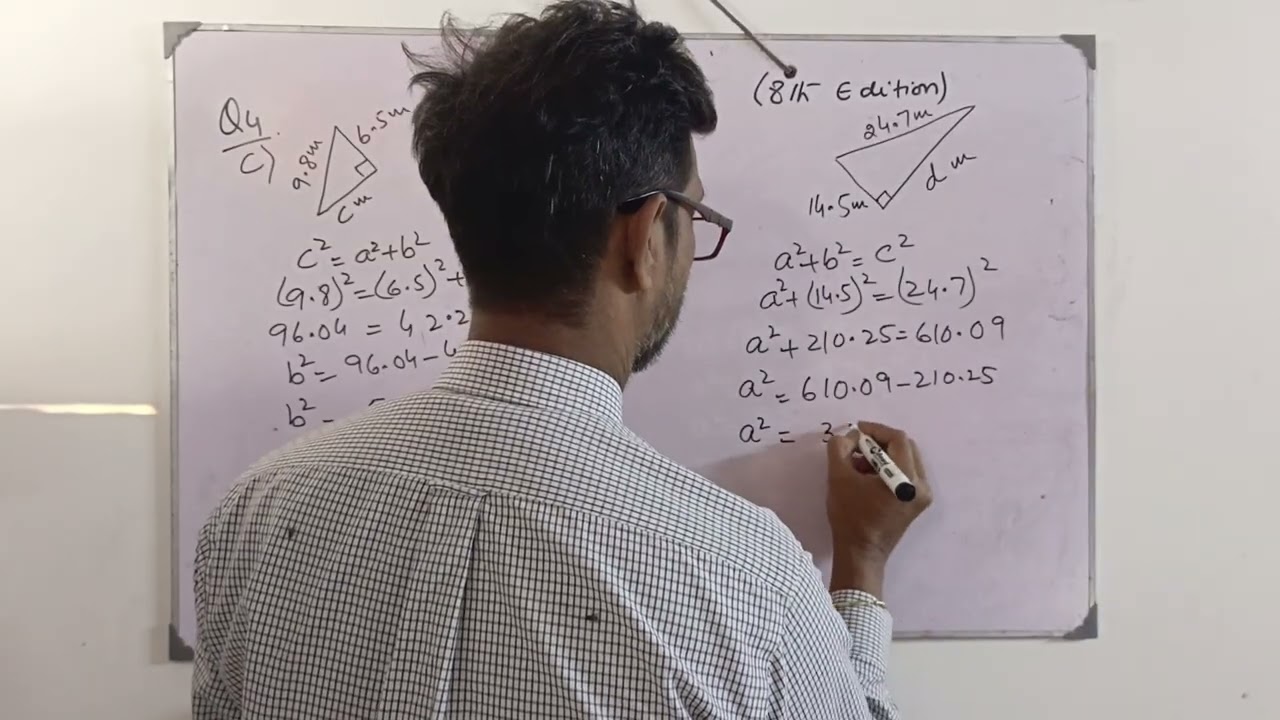 Q4
c)
9.8m
6.5m
cm
c² = a²+b²
(9.8)²=(6.5)²+
96.04 = 42.2
b² = 96.04-4
b² =
(8th Edition)
24.7m
14.5m
dm
a²+b² = c²
a²+(14.5)² = (24.7)²
a²+210.25=610.09
a² = 610.09-210.25
a² = 3